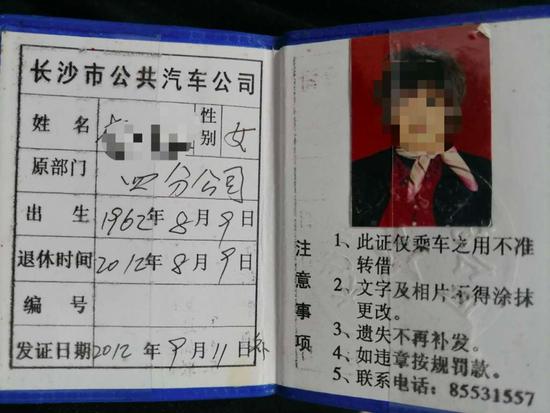 长沙市公共汽车公司
姓 名
性别 女
原部门 四分公司
出 生 1962年8月9日
退休时间 2012年8月9日
编 号
发证日期 2012年9月11日补
注意事项
1、此证仅乘车之用不准
转借。
2、文字及相片不得涂抹
更改。
3、遗失不再补发。
4、如违章按规罚款。
5、联系电话：85531557